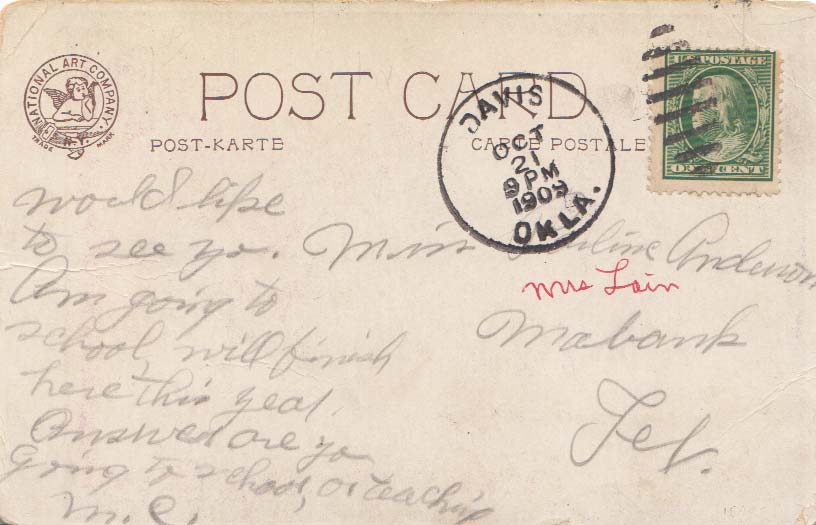 NATIONAL ART COMPANY.
N.Y.
TRADE MARK
POST CARD
POST-KARTE
CARTE POSTALE
DAVIS
OCT
21
9 PM
1909
OKLA.
U.S. POSTAGE
ONE CENT
would like
to see yo.
Am going to
school, will finish
here this year.
Answer are yo
going to school, or teaching
M. C.
Miss Pauline Anderson
Mrs Lain
Mabank
Tex.